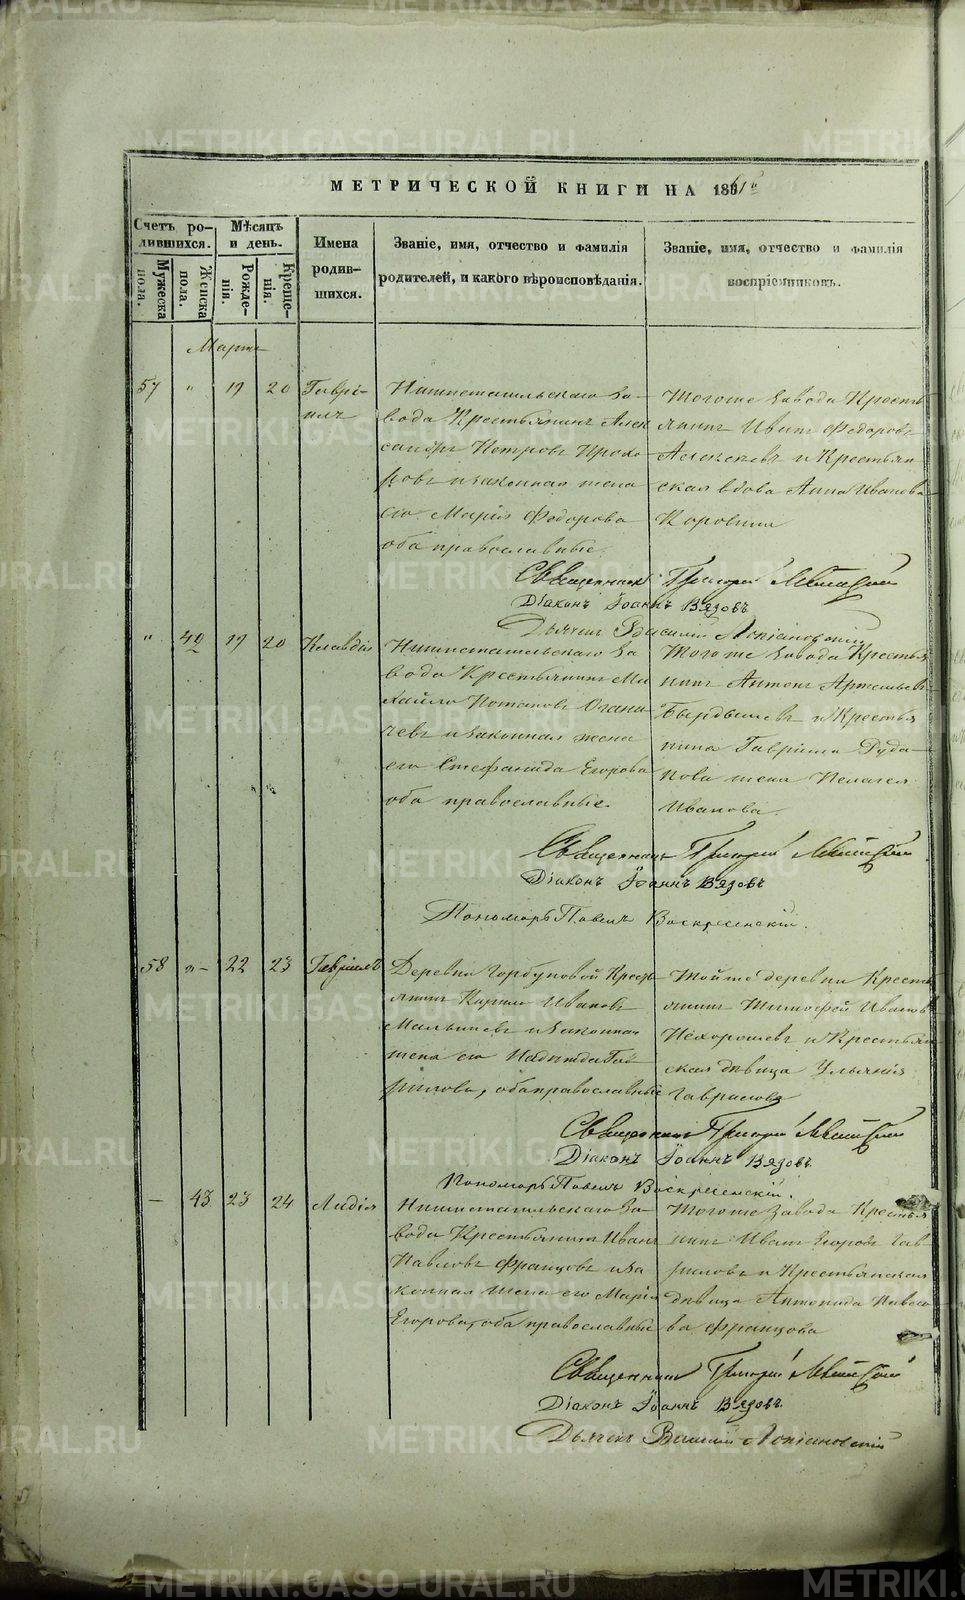 МЕТРИЧЕСКОЙ КНИГИ НА 1861й
Счетъ ро-
дившихся.
Мужеска пола.
Женска пола.
Мѣсяцъ
и день.
Рожде-
нія.
Креще-
нія.
Имена
родив-
шихся.
Званіе, имя, отчество и фамилія
родителей, и какого вѣроисповѣданія.
Званіе, имя, отчество и фамилія
воспріемниковъ.
Марта
57 " 19 20 Гаврі-
илъ
Нижнетагильскаго За-
вода Крестьянинъ Алек
сандръ Петровъ Прохо
ровъ и законная жена
его Марія Федорова
оба православные.
Тогоже Завода Кресть
янинъ Иванъ Федоровъ
Алексѣевъ и Крестьян
ская вдова Анна Иванова
Коровина
Священникъ Григорій
Діаконъ Іоаннъ Вязовъ
Дьячекъ Василій
" 42 19 20 Клавдія
Нижнетагильскаго За
вода Крестьянинъ Ми
хайло Потаповъ
и законная жена
его Стефанида Егорова
оба православные.
Тогоже Завода Кресть
нинъ Антонъ Артемьевъ
Бердышевъ и Крестья
нина Гавріила Руда
кова жена Пелагея
Иванова.
Священникъ Григорій
Діаконъ Іоаннъ Вязовъ
Пономарь Павелъ Воскресенскій.
58 " 22 23 Гавріилъ
Деревни Горбуновой Крест
янинъ Кирилъ Ивановъ
Мальцевъ и законная
жена его Надежда Гав
рилова, оба православные
Тойже деревни Кресть
янинъ Тимофей Ивановъ
Нехорошевъ и Крестьян
ская дѣвица Ульянія
Гаврилова
Священникъ Григорій
Діаконъ Іоаннъ Вязовъ.
Пономарь Павелъ Воскресенскій.
— 43 23 24 Лидія
Нижнетагильскаго За-
вода Крестьянинъ Иванъ
Павловъ Французовъ и за
конная жена его Марія
Егорова, оба православные
Тогоже Завода Крестья
нинъ Иванъ Егоровъ Гав
риловъ и Крестьянская
дѣвица Павло
ва Французова
Священникъ Григорій
Діаконъ Іоаннъ Вязовъ.
Дьячекъ Василій
METRIKI.GASO-URAL.RU